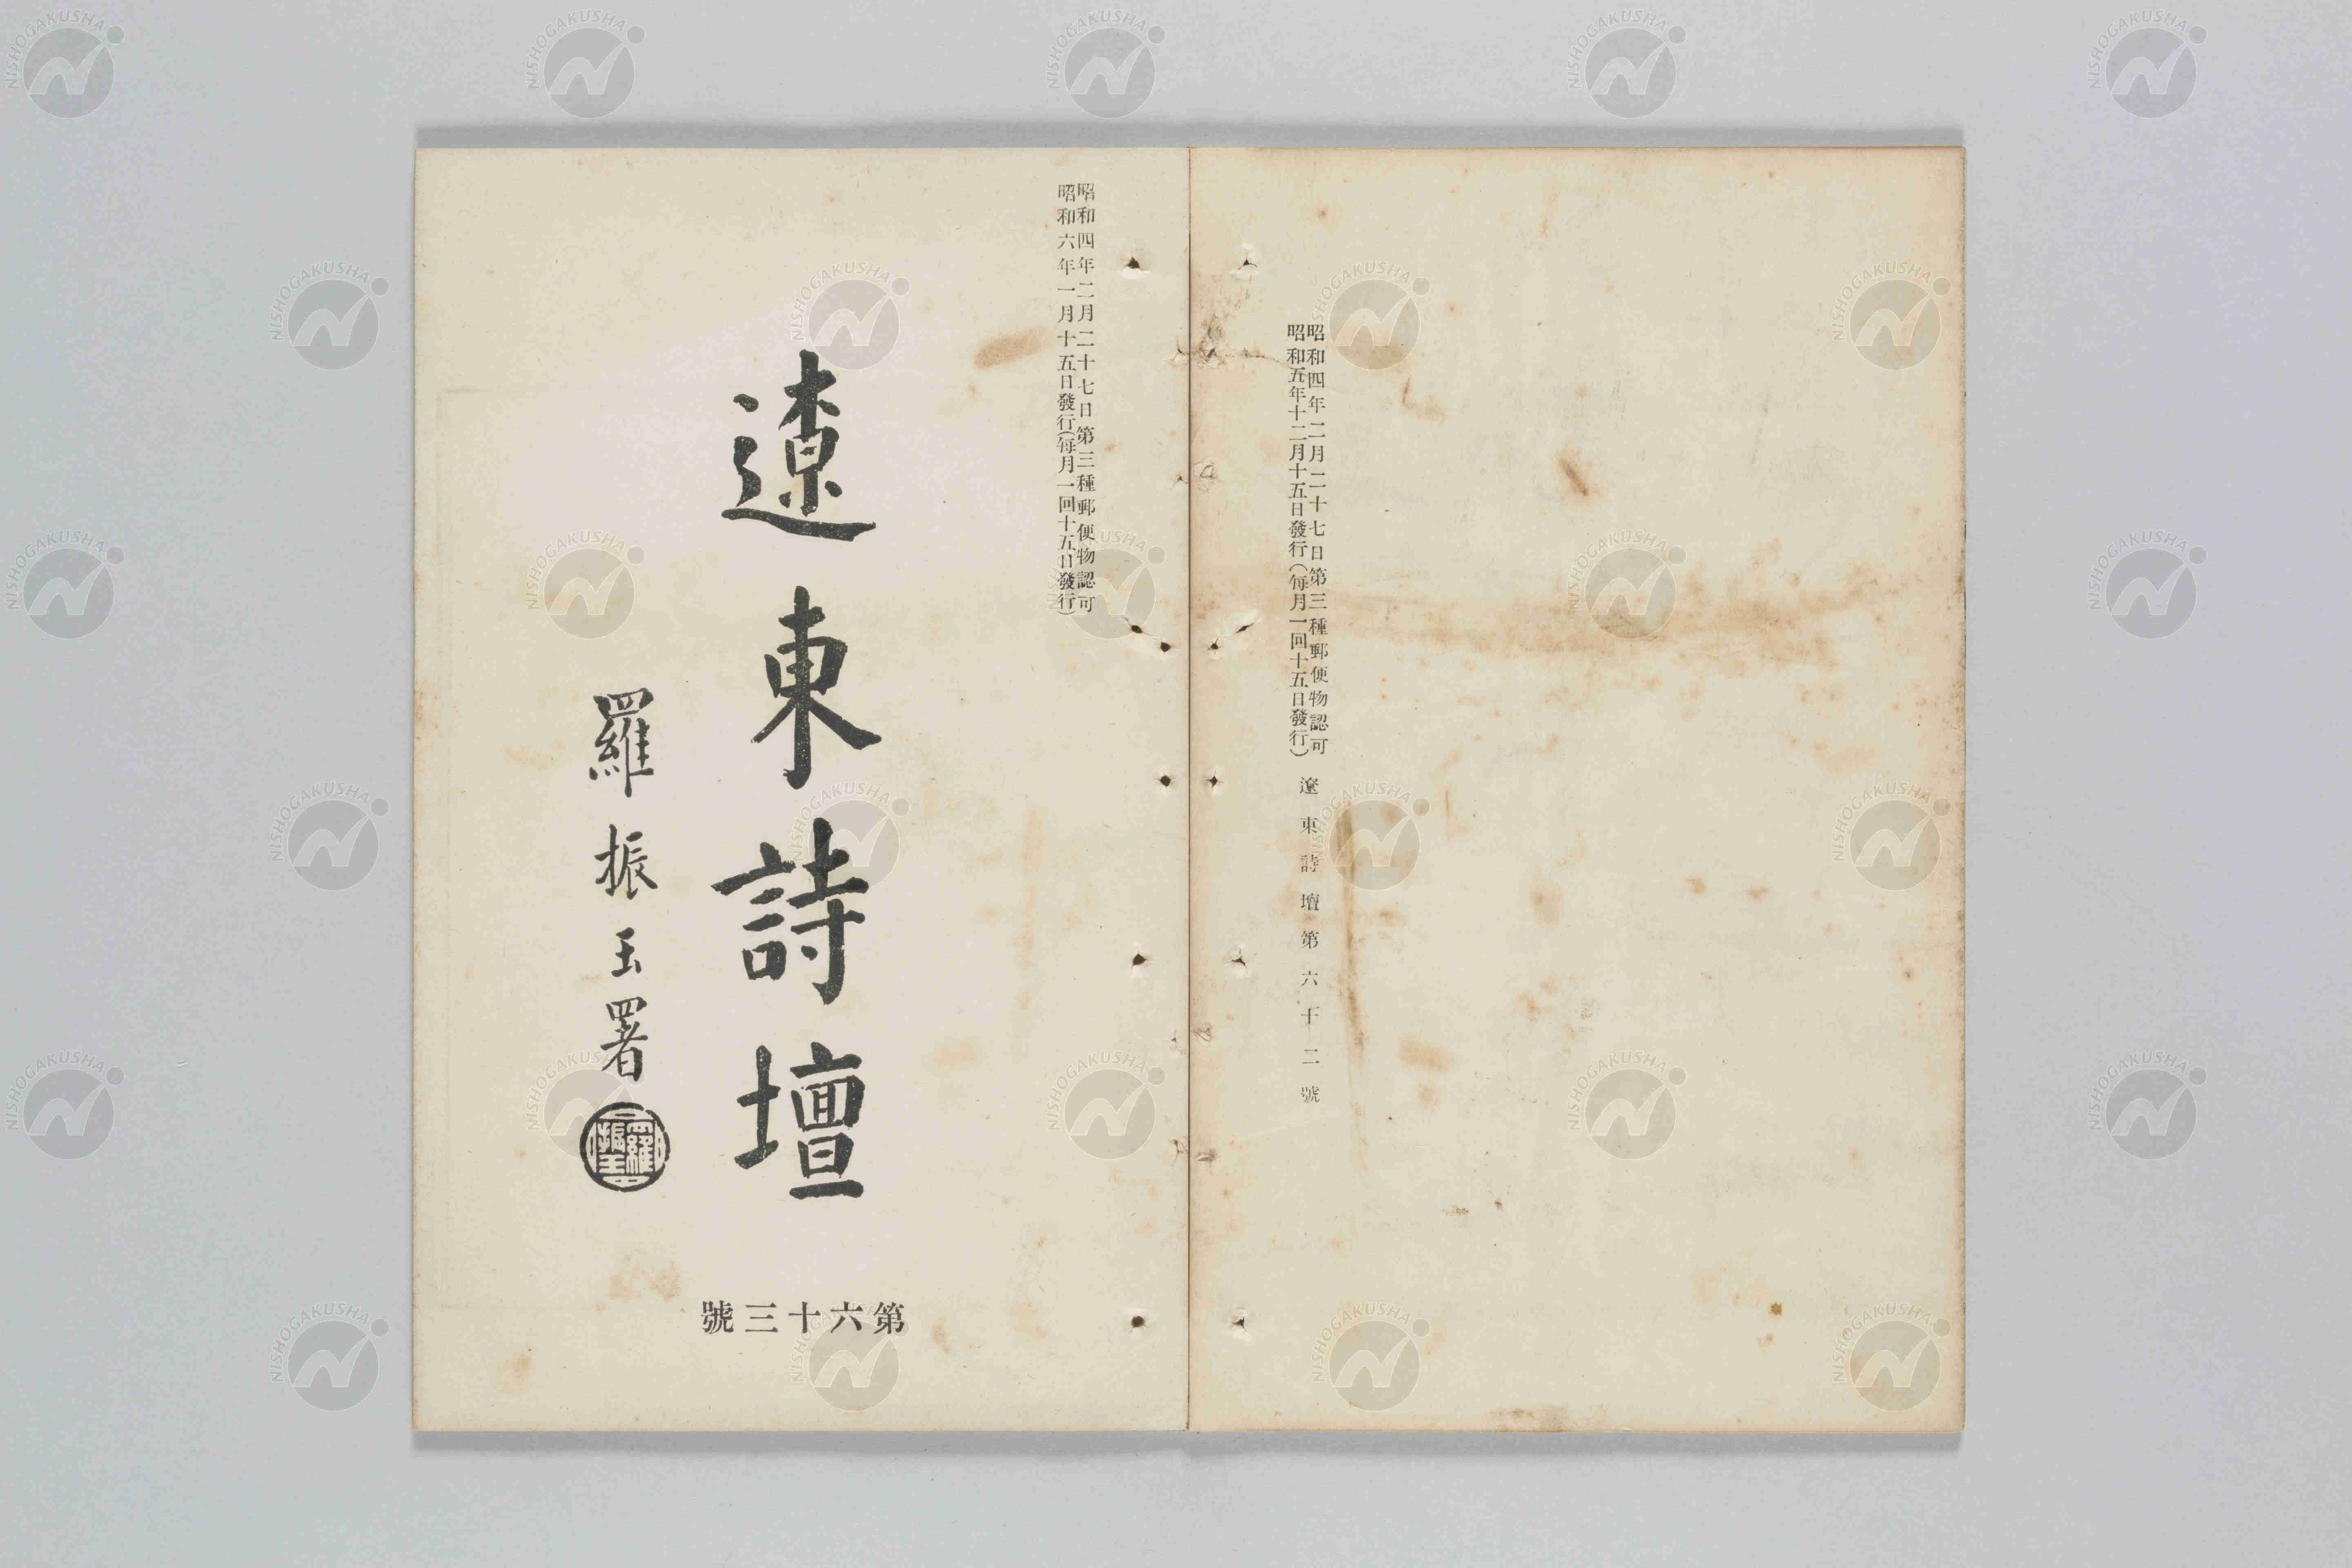 昭和四年二月二十七日第三種郵便物認可
昭和五年十二月十五日發行(每月一回十五日發行)
遼東詩壇第六十二號
昭和四年二月二十七日第三種郵便物認可
昭和六年一月十五日發行(每月一回十五日發行)
遼東詩壇
羅振玉署
羅振玉
第六十三號
NISHOGAKUSHA